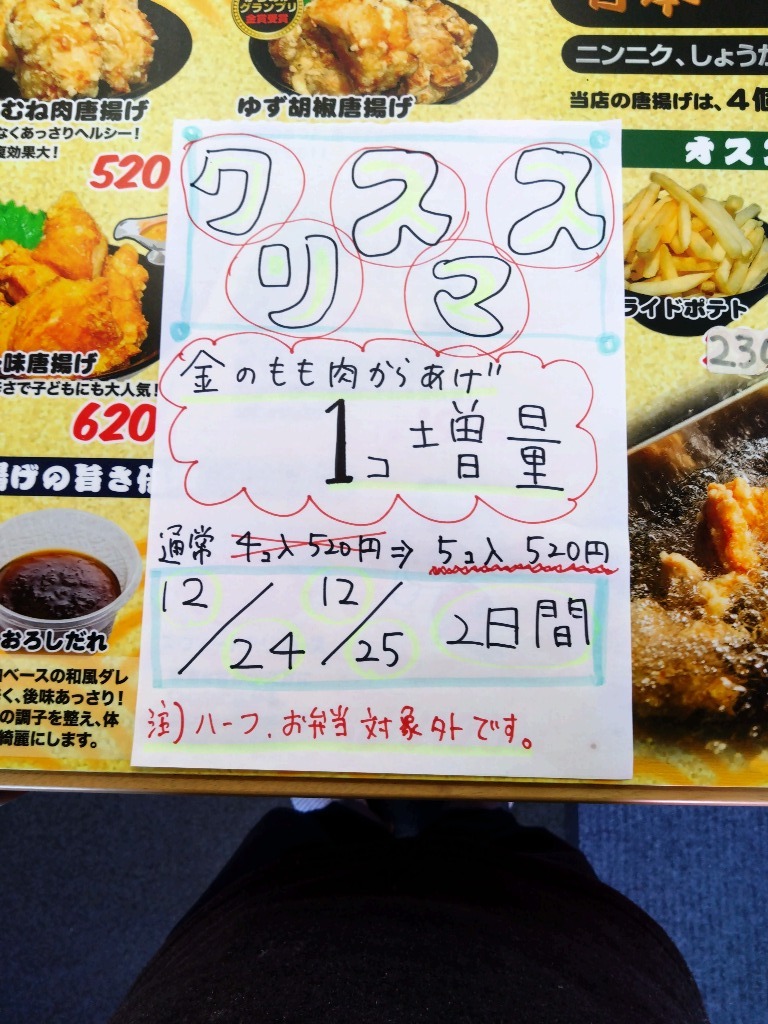 グランプリ
金賞受賞
むね肉唐揚げ
なくあっさりヘルシー!
効果大!
520
ゆず胡椒唐揚げ
日本
ニンニク、しょうが
当店の唐揚げは、4個
オス
クリスマス
金のもも肉からあげ
1コ 増量
通常 4コ入 520円 ⇒ 5コ入 520円
12/24 12/25 2日間
注)ハーフ、お弁当 対象外です。
味唐揚げ
さで子どもにも大人気!
620
揚げの旨さ
おろしだれ
ベースの和風ダレ
く、後味あっさり!
の調子を整え、体
綺麗にします。
ライドポテト
230